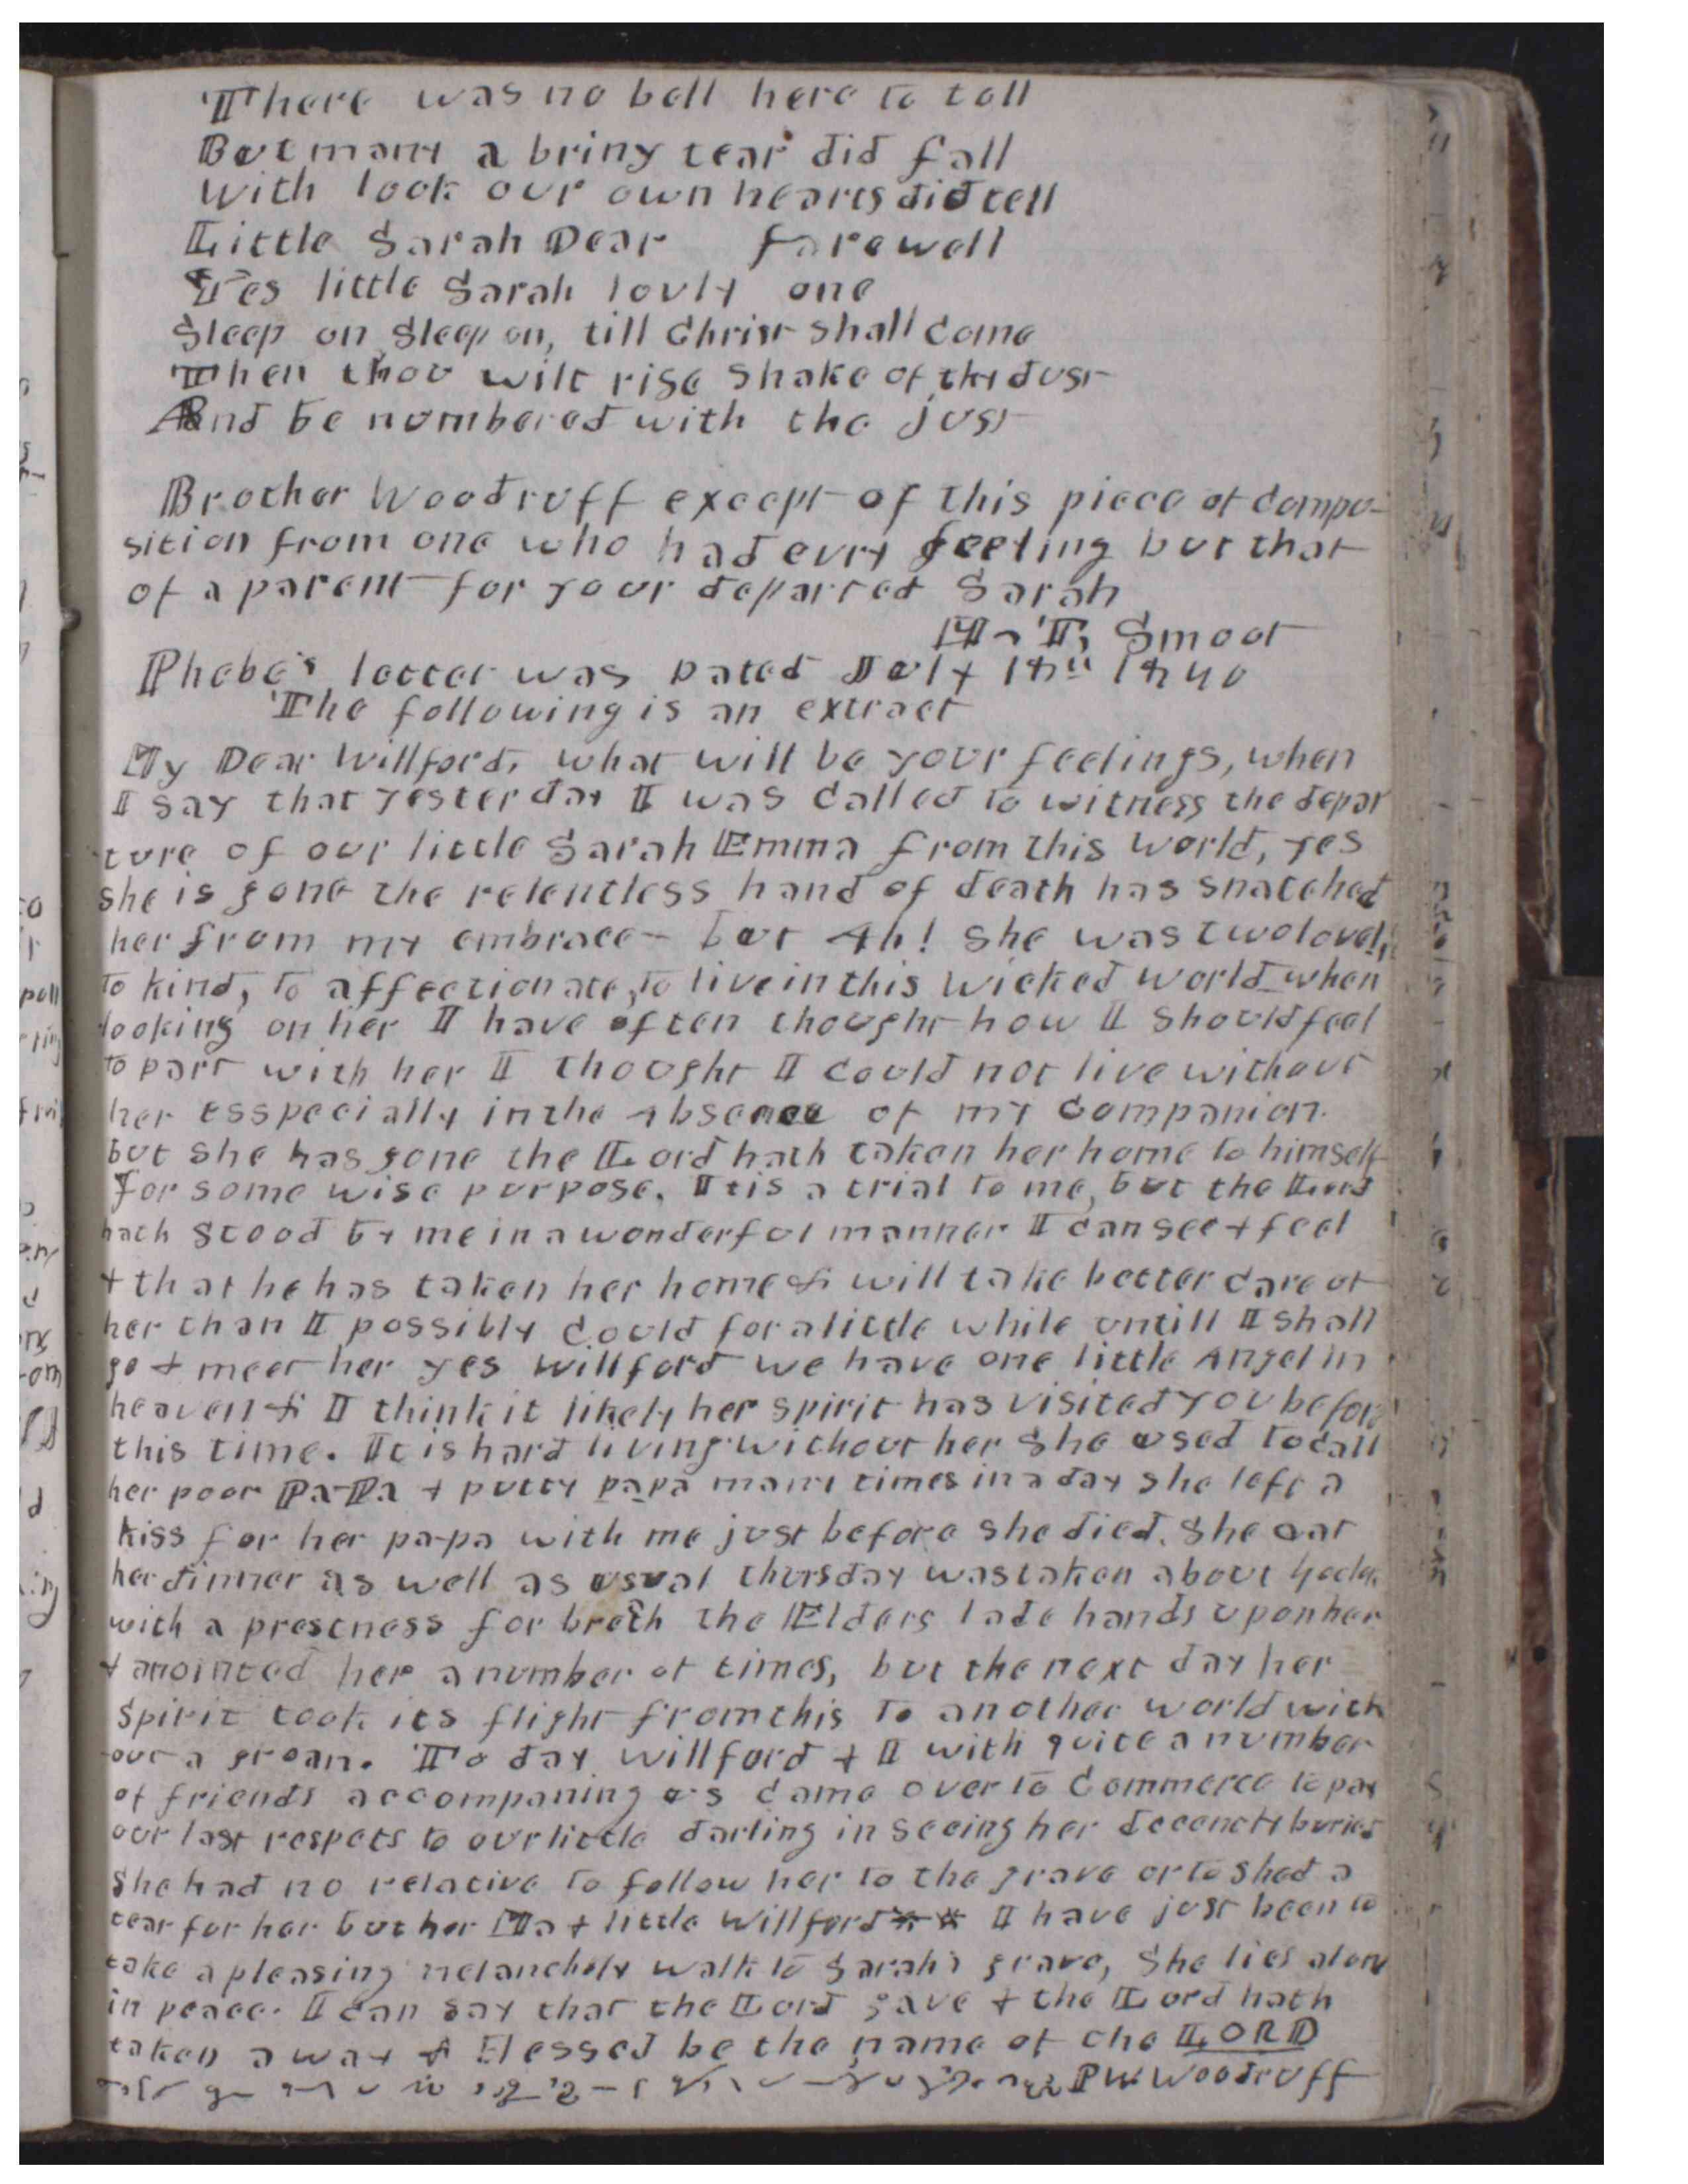 There was no bell here to toll
But many a briny tear did fall
With look our own hearts did tell
Little Sarah Dear farewell
Yes little Sarah lovly one
Sleep on Sleep on, till Christ shall Come
Then thou wilt rise Shake of thy dust
And be numbered with the just
Brother Woodruff except of this piece of Compo-
sition from one who had evry feeling but that
of a parent for your departed Sarah
M. T. Smoot
Phebe's letter was Dated July 18th 1840
The following is an extract
My Dear Willford, what will be your feelings, when
I say that yesterday I was Called to witness the depar
ture of our little Sarah Emma from this world, yes
she is gone the relentless hand of death has snatched
her from my embrace- but Ah! she was two lovely
to kind, to affectionate, to live in this wicked world when
looking on her I have often thought how I Should feel
to part with her I thought I Could not live without
her esspecially in the absence of my Companion.
but she has gone the Lord hath taken her home to himself
for some wise purpose. It is a trial to me, but the Lord
hath Stood by me in a wonderful manner I Can see & feel
& that he has taken her home & will take better Care of
her than I possibly Could for a little while untill I shall
go & meet her yes Willford we have one little Angel in
heaven & I think it likely her spirit has visited you before
this time. It is hard living without her She used to Call
her poor Pa-Pa & putty papa many times in a day she left a
kiss for her pa-pa with me just before she died. She eat
her dinner as well as usual thursday was taken about 4 oclo.
with a prestness for breth the Elders lade hands upon her
& anointed her a number of times, but the next day her
Spirit took its flight from this to another world with
out a groan. To day Willford & I with quite a number
of friends accompaning us Came over to Commerce to pay
our last respets to our little darling in seeing her decently buried
She had no relative to follow her to the grave or to Shed a
tear for her but her Ma & little Willford ** I have just been to
take a pleasing melancholy walk to Sarah's grave, She lies alone
in peace. I Can say that the Lord gave & the Lord hath
taken away & Blessed be the name of the LORD
P W Woodruff